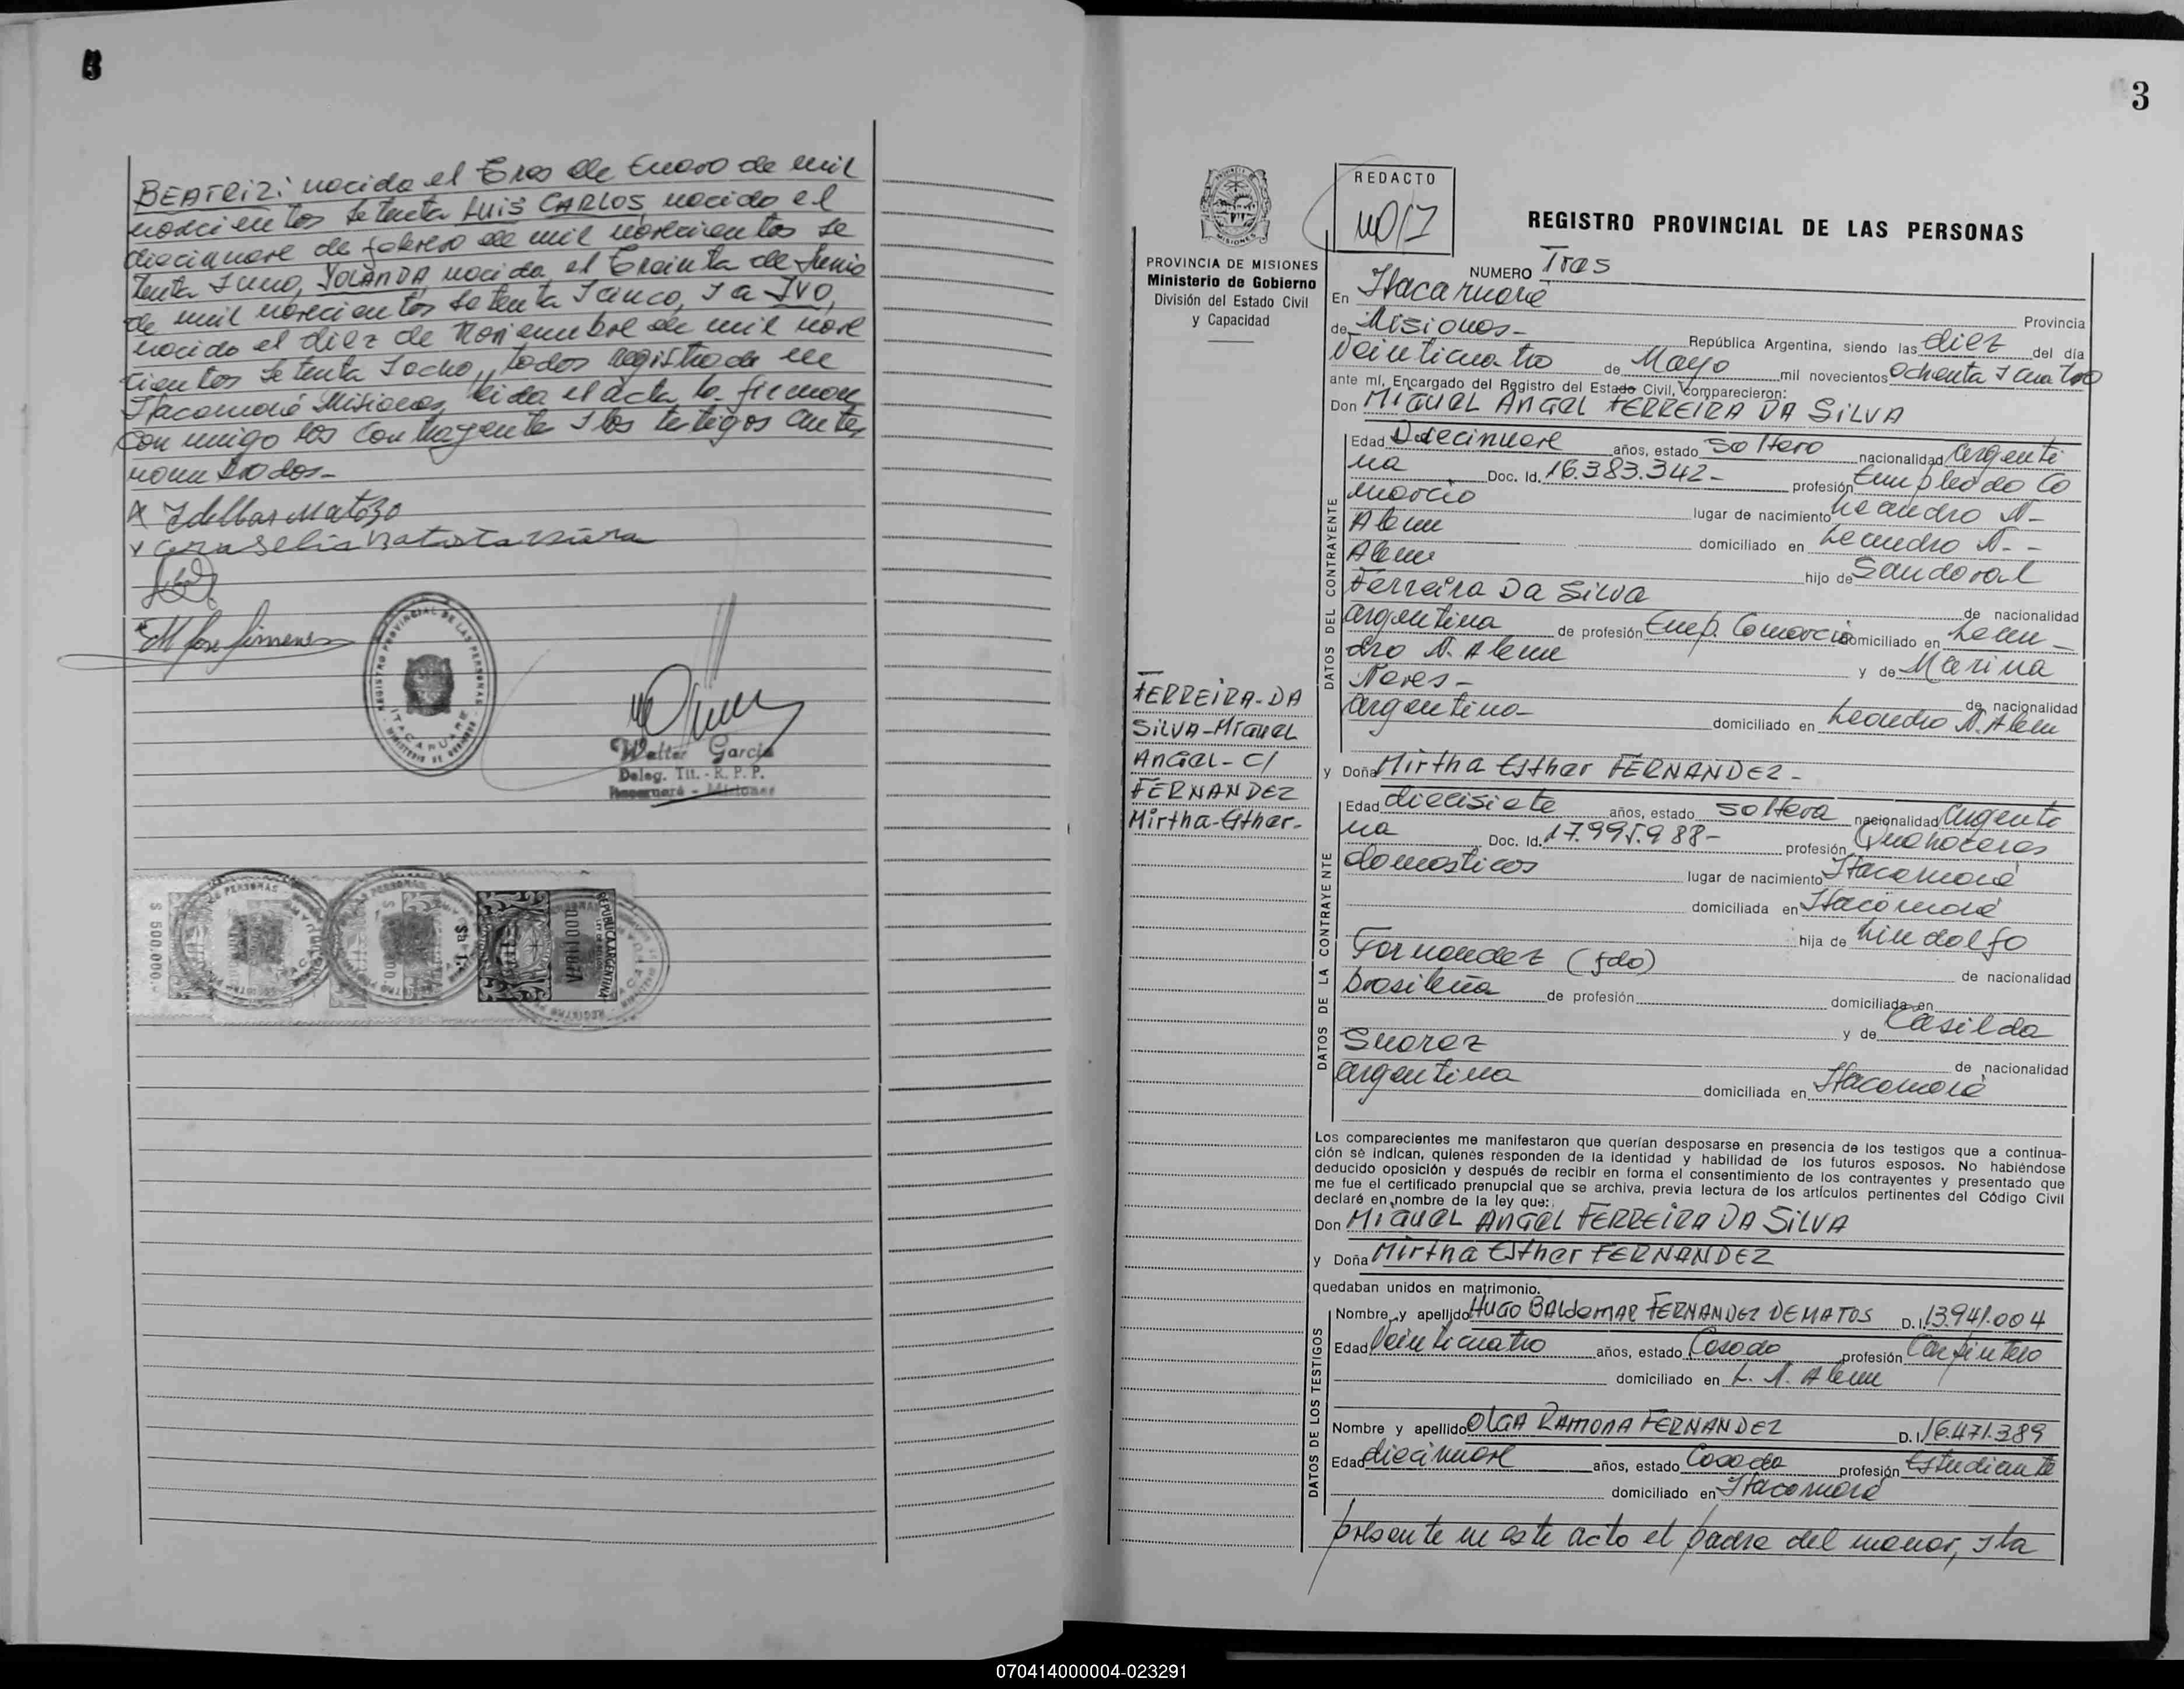 BEATRIZ: nacida el Tres de Enero de mil
novecientos setenta LUIS CARLOS, nacido el
diecinueve de febrero de mil novecientos se
tenta y uno, YOLANDA, nacida el treinta de Junio
de mil novecientos setenta y cinco, y a IVO,
nacido el diez de Noviembre de mil nove
cientos setenta y ocho, todos registrado en
Itacaruaré Misiones, leida el acta la firman
con migo los contrayente y los testigos antes
nombrados-
Walter Garcia
Deleg. Tit. - R. P. P.
Itacaruaré - Misiones
REGISTRO PROVINCIAL DE LAS PERSONAS
ITACARUARE
MINISTERIO DE GOBIERNO
$ 500.000.-
REPUBLICA ARGENTINA
3
REDACTO
REGISTRO PROVINCIAL DE LAS PERSONAS
MISIONES
PROVINCIA DE MISIONES
Ministerio de Gobierno
División del Estado Civil
y Capacidad
NUMERO Tres
En Itacaruaré Provincia
de Misiones- República Argentina, siendo las diez del día
Veinticuatro de Mayo mil novecientos Ochenta y cuatro
ante mí, Encargado del Registro del Estado Civil, comparecieron:
Don MIGUEL ANGEL FERREIRA DA SILVA
DATOS DEL CONTRAYENTE
Edad Diecinueve años, estado Soltero nacionalidad argenti
na Doc. Id. 16.383.342- profesión Empleado Co
mercio lugar de nacimiento Leandro N-
Alem domiciliado en Leandro N.-
Alem hijo de Sandoval
Ferreira Da Silva de nacionalidad
argentina de profesión Emp. Comercio domiciliado en Lean-
dro N. Alem y de Marina
Neves- de nacionalidad
argentina- domiciliado en Leandro N. Alem
FERREIRA-DA
SILVA-Miguel
Angel- C/
FERNANDEZ
Mirtha-Esther-
y Doña Mirtha Esther FERNANDEZ-
DATOS DE LA CONTRAYENTE
Edad diecisiete años, estado soltera nacionalidad Argenti
na Doc. Id. 17.995.988- profesión Quehaceres
domesticos lugar de nacimiento Itacaruaré
domiciliada en Itacaruaré
hija de Lindolfo
Fernandez (fdo) de nacionalidad
brasileña de profesión domiciliada en
y de Casilda
Suarez de nacionalidad
argentina domiciliada en Itacaruaré
Los comparecientes me manifestaron que querían desposarse en presencia de los testigos que a continua-
ción se indican, quienes responden de la identidad y habilidad de los futuros esposos. No habiéndose
deducido oposición y después de recibir en forma el consentimiento de los contrayentes y presentado que
me fue el certificado prenupcial que se archiva, previa lectura de los artículos pertinentes del Código Civil
declaré en nombre de la ley que:
Don MIGUEL ANGEL FERREIRA DA SILVA
y Doña Mirtha Esther FERNANDEZ
quedaban unidos en matrimonio.
DATOS DE LOS TESTIGOS
Nombre y apellido HUGO BALDOMAR FERNANDEZ DEMATOS D. I. 13.941.004
Edad Veinticuatro años, estado Casado profesión Carpintero
domiciliado en L. N. Alem
Nombre y apellido OLGA RAMONA FERNANDEZ D. I. 16.471.389
Edad diecinueve años, estado Casada profesión Estudiante
domiciliado en Itacaruaré
presente en este acto el padre del menor, y la
070414000004-023291